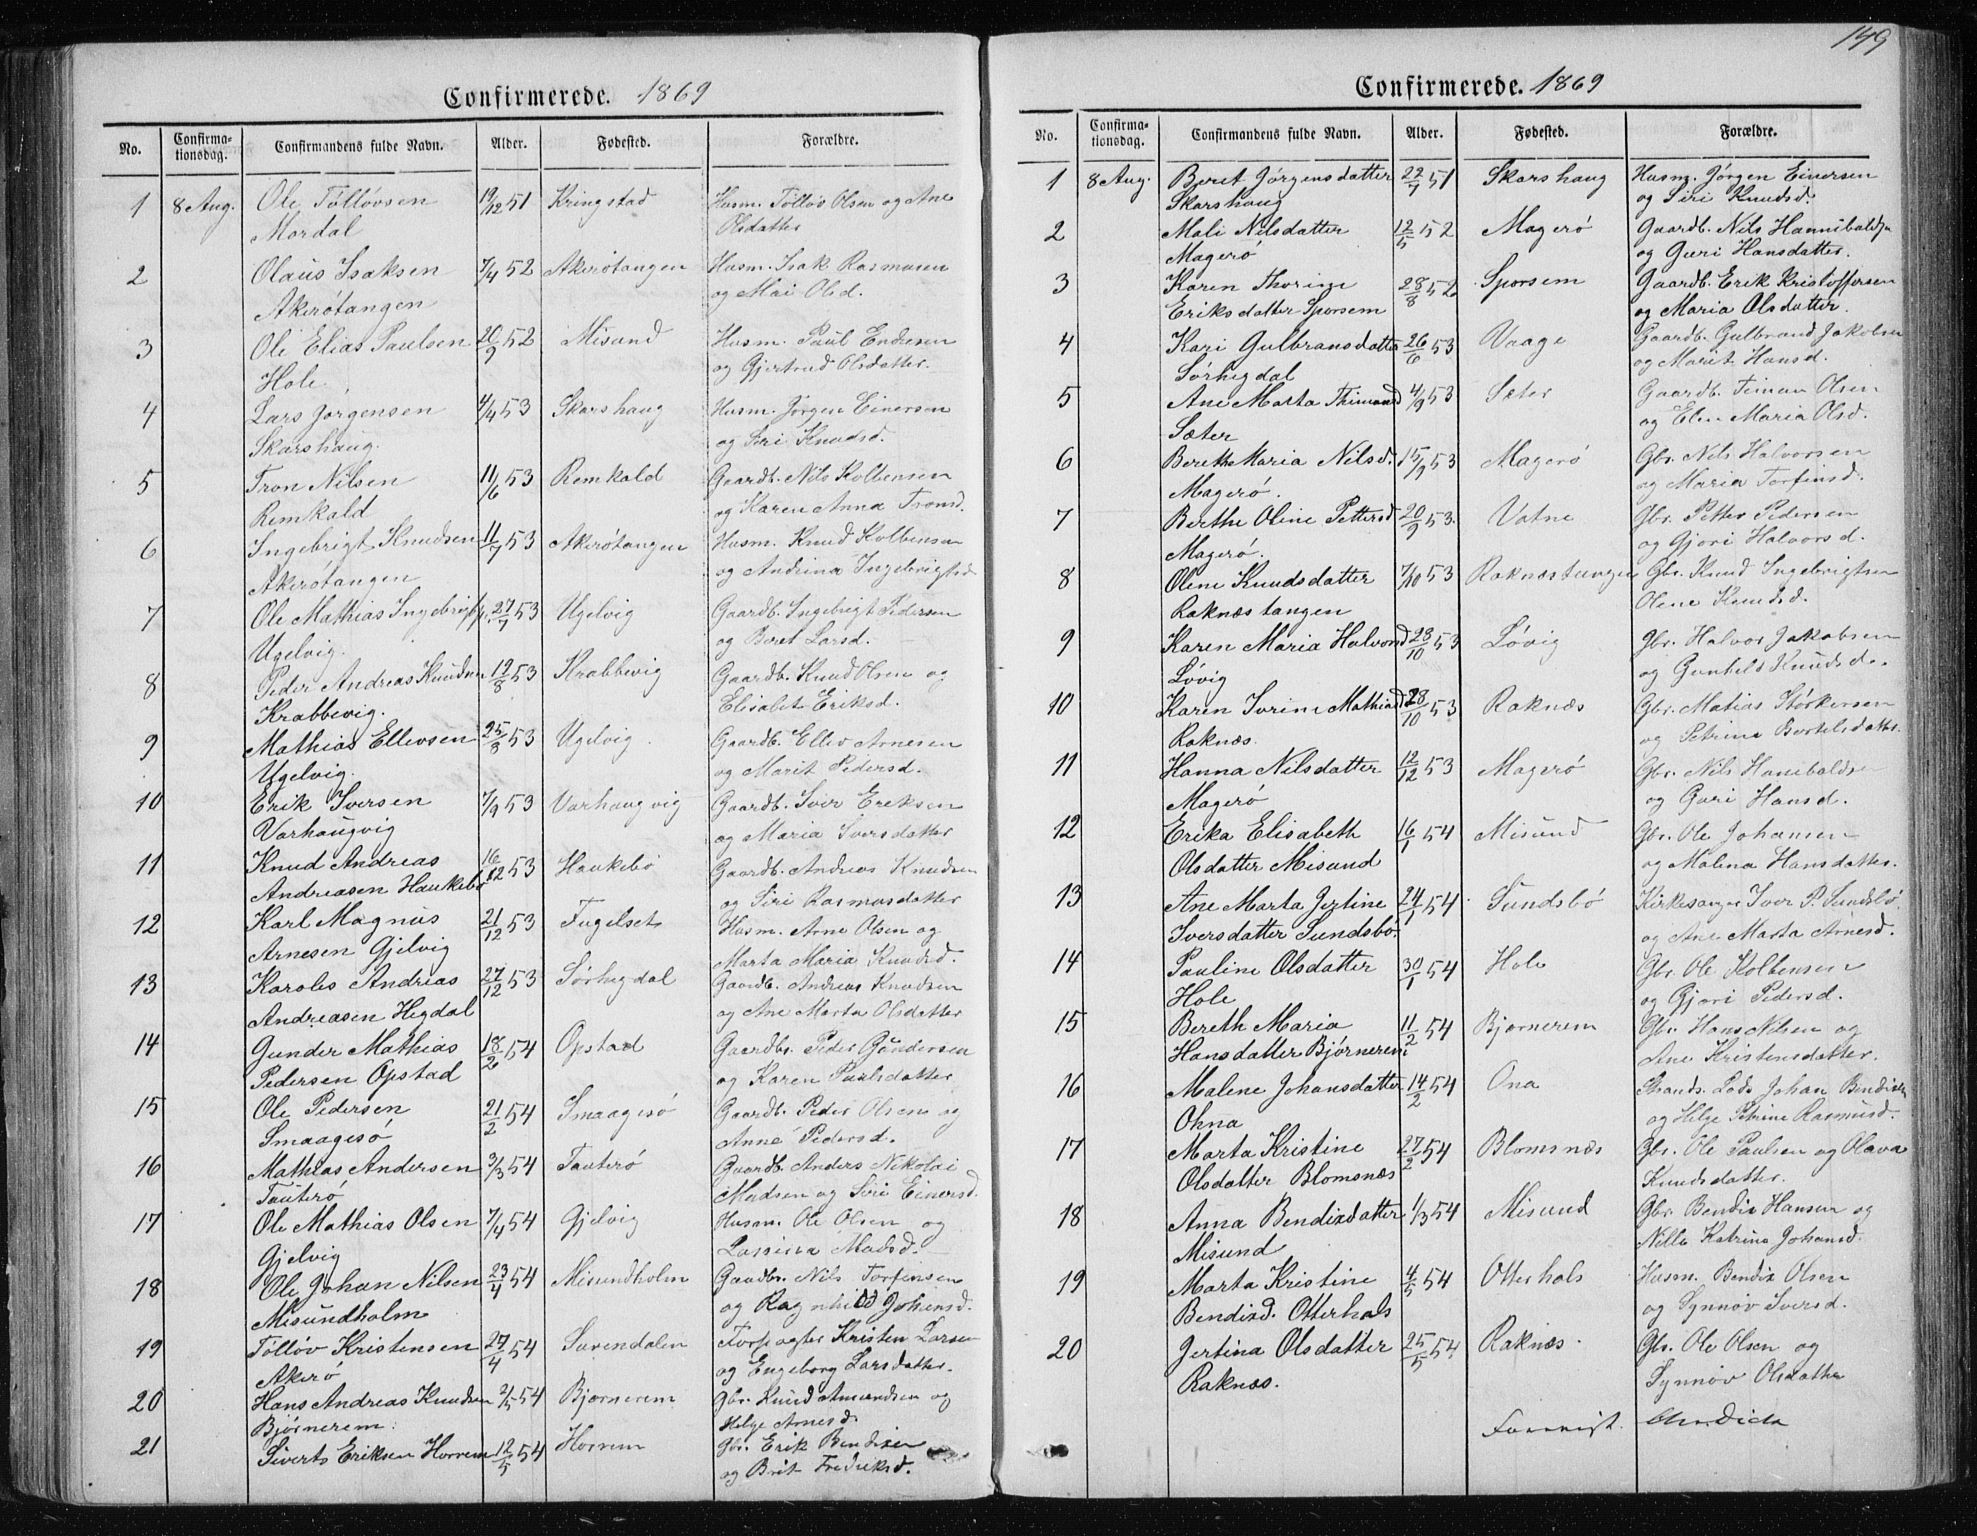 149
Confirmerede. 1869
No. Confirma-tionsdag. Confirmandens fulde Navn. Alder. Fødested. Forældre.
1 8 Aug. Ole Tölløvsen 19/12 51 Kringstad Husm. Tölløv Olsen og Ane
Mordal Olsdatter
2 Olaus Isaksen 7/4 52 Akerötangen Husm. Isak Rasmusen
Akerötangen og Mai Olsd.
3 Ole Elias Paulsen 20/9 52 Misund Husm. Paul Endresen
Hole. og Gjertrud Olsdatter.
4 Lars Jørgensen 4/4 53 Skarshaug Husm. Jørgen Einersen
Skarshaug. og Siri Knudsd.
5 Tron Nilsen 11/6 53 Remkald Gaardb. Nils Kolbensen
Remkald og Karen Anna Tronsd.
6 Ingebrigt Knudsen 11/7 53 Akerötangen Husm. Knud Kolbensen
Akerötangen og Andrina Ingebrigtsd
7 Ole Mathias Ingebrigts. 27/7 53 Ugelvig Gaardb. Ingebrigt Pedersen
Ugelvig. og Beret Larsd.
8 Peder Andreas Knudsen 12/8 53 Krabbevig Gaardb. Knud Olsen og
Krabbevig. Elisabet Eriksd.
9 Mathias Ellevsen 25/8 53 Ugelvig Gaardb. Ellev Arnesen
Ugelvig. og Marit Pedersd.
10 Erik Iversen 7/9 53 Varhaugvig Gaardb. Iver Eriksen
Varhaugvig og Maria Iversdatter
11 Knud Andreas 16/12 53 Haukebö Gaardb. Andreas Knudsen
Andreasen Haukebö og Siri Rasmusdatter
12 Karl Magnus 21/12 53 Fugelset Husm. Arne Olsen og
Arnesen Gjelvig Marta Maria Knudsd.
13 Karoles Andrias 27/12 53 Sørhegdal Gaardb. Andreas Knudsen
Andreasen Hegdal og Ane Marta Olsdatter
14 Gunder Mathias 18/2 54 Opstad Gaardbr. Peder Gundersen
Pedersen Opstad og Karen Paulsdatter
15 Ole Pedersen 21/2 54 Smaagesö Gaardb. Peder Olsen og
Smaagesö Anne Pedersd.
16 Mathias Andersen 3/3 54 Tauterö Gaardb. Anders Nikolai
Tauterö Madsen og Siri Einersd.
17 Ole Mathias Olsen 7/4 54 Gjelvig Husm. Ole Olsen og
Gjelvig Madsd.
18 Ole Johan Nilsen 23/4 54 Misundholm Gaardbr. Nils Torfinsen
Misundholm og Ragnhild Johansd.
19 Tölløv Kristensen 27/4 54 Surendalen Kristen Larsen
Akerö og Engeborg Larsdatter.
20 Hans Andreas Knudsen 2/5 54 Bjørnerem Gbr. Knud Amundsen og
Bjørnerem. Helge Arnesd.
21 Siverts Eriksen Horrem 12/5 54 Horrem Gbr. Erik Bendixen
og Brit Fredriksd.
Confirmerede. 1869
No. Confirma-tionsdag. Confirmandens fulde Navn. Alder. Fødested. Forældre.
1 8 Aug. Beret Jörgensdatter 22/7 51 Skarshaug Husm. Jörgen Einersen
Skarshaug og Siri Knudsd.
2 Mali Nilsdatter 12/5 52 Magerö Gaardb. Nils Hannibalds
Magerö og Guri Hansdatter.
3 Karen Thorine 28/8 52 Sporsem Gaardb. Erik Kristoffersen
Eriksdatter Sporsem og Maria Olsdatter.
4 Kari Gulbransdatter 26/6 53 Vaage Gaardb. Gulbrand Jakobsen
Sörhegdal og Marit Hansd.
5 Ane Marta Thimansd 4/9 53 Sæter Gaardb. Timan Olsen
Sæter og Elen Maria Olsd.
6 Bereth Maria Nilsd. 15/9 53 Magerö Gbr. Nils Halvorsen
Magerö. og Maria Torfinsd.
7 Berthe Oline Pettersd 20/9 53. Vatne Gbr. Petter Pedersen
Magerö. og Gjöri Halvorsd.
8 Oline Knudsdatter 7/10 53 Raknæstangen Gbr. Knud Ingebrigtsen
Raknæstangen Olene Knudsd.
9 Karen Maria Halvorsd 23/10 53 Lövig Gbr. Halvor Jakobsen
Lövig og Gunhild Knudsd.
10 Karen Ivrine Mathiasd 28/10 53 Raknæs Gbr. Matias Störkersen
Raknæs. og Petrine Bertelsdatter.
11 Hanna Nilsdatter 12/12 53 Magerö Gbr. Nils Hanibalds
Magerö og Guri Hansd.
12 Erika Elisabeth 16/1 54 Misund Gbr. Ole Johansen
Olsdatter Misund og Malena Hansdatter.
13 Ane Marta Jertine 24/1 54 Sundsbö Kirkesanger Iver P. Sundsbö
Iversdatter Sundsbö. og Ane Marta Arnesd.
14 Pauline Olsdatter 30/1 54 Hole Gbr. Ole Kolbensen
Hole og Gjøri Pedersd.
15 Bereth Maria 11/2 54 Bjørnerem Gbr. Hans Nilsen og
Hansdatter Bjørnerem. Ane Kristensdatter.
16 Malene Johansdatter 14/2 54 Ona Lods Johan Bendixen
Ohna og Helge Petrine Rasmusd.
17 Marta Kristine 27/2 54 Blomsnæs Gbr. Ole Paulsen og Olava
Olsdatter Blomsnæs Knudsdatter.
18 Anna Bendixdatter 1/3 54 Misund Gbr. Bendix Hansen og
Misund Nille Katrine Johansd.
19 Marta Kristine 4/5 54 Otterhals Husm. Bendix Olsen
Bendixd. Otterhals og Synnöv Iversd.
20 Jertina Olsdatter 25/5 54 Raknæs. Gbr. Ole Olsen og
Raknæs. Synnöv Olsdatter